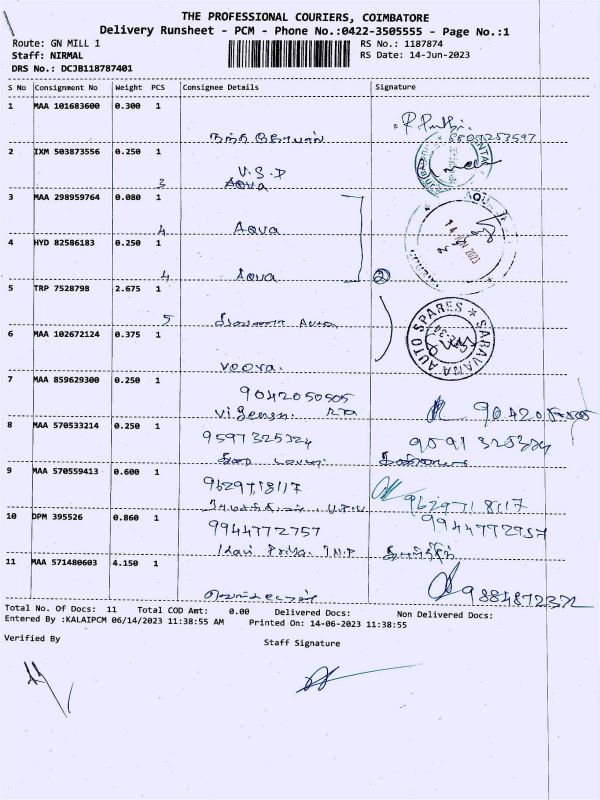 THE PROFESSIONAL COURIERS, COIMBATORE
Delivery Runsheet - PCM - Phone No.:0422-3505555 - Page No.:1
Route: GN MILL 1 RS No.: 1187874
Staff: NIRMAL RS Date: 14-Jun-2023
DRS No.: DCJB118787401
S No Consignment No Weight PCS Consignee Details Signature
1 MAA 101683600 0.300 1
2 IXM 503873556 0.250 1
V.S.P
3 AQUA
3 MAA 298959764 0.080 1
4 AQUA
14 JUN 2023
4 HYD 82586183 0.250 1
4 AQUA 2
5 TRP 7528798 2.675 1
5
SARAVANA AUTO SPARES
6 MAA 102672124 0.375 1
7 MAA 859629300 0.250 1
9042050505
8 MAA 570533214 0.250 1
9597325324
9 MAA 570559413 0.600 1
9629718117 9629718117
10 DPM 395526 0.860 1
9944772757 9944772757
11 MAA 571480603 4.150 1
Total No. Of Docs: 11 Total COD Amt: 0.00 Delivered Docs: Non Delivered Docs:
Entered By :KALAIPCM 06/14/2023 11:38:55 AM Printed On: 14-06-2023 11:38:55
Verified By Staff Signature